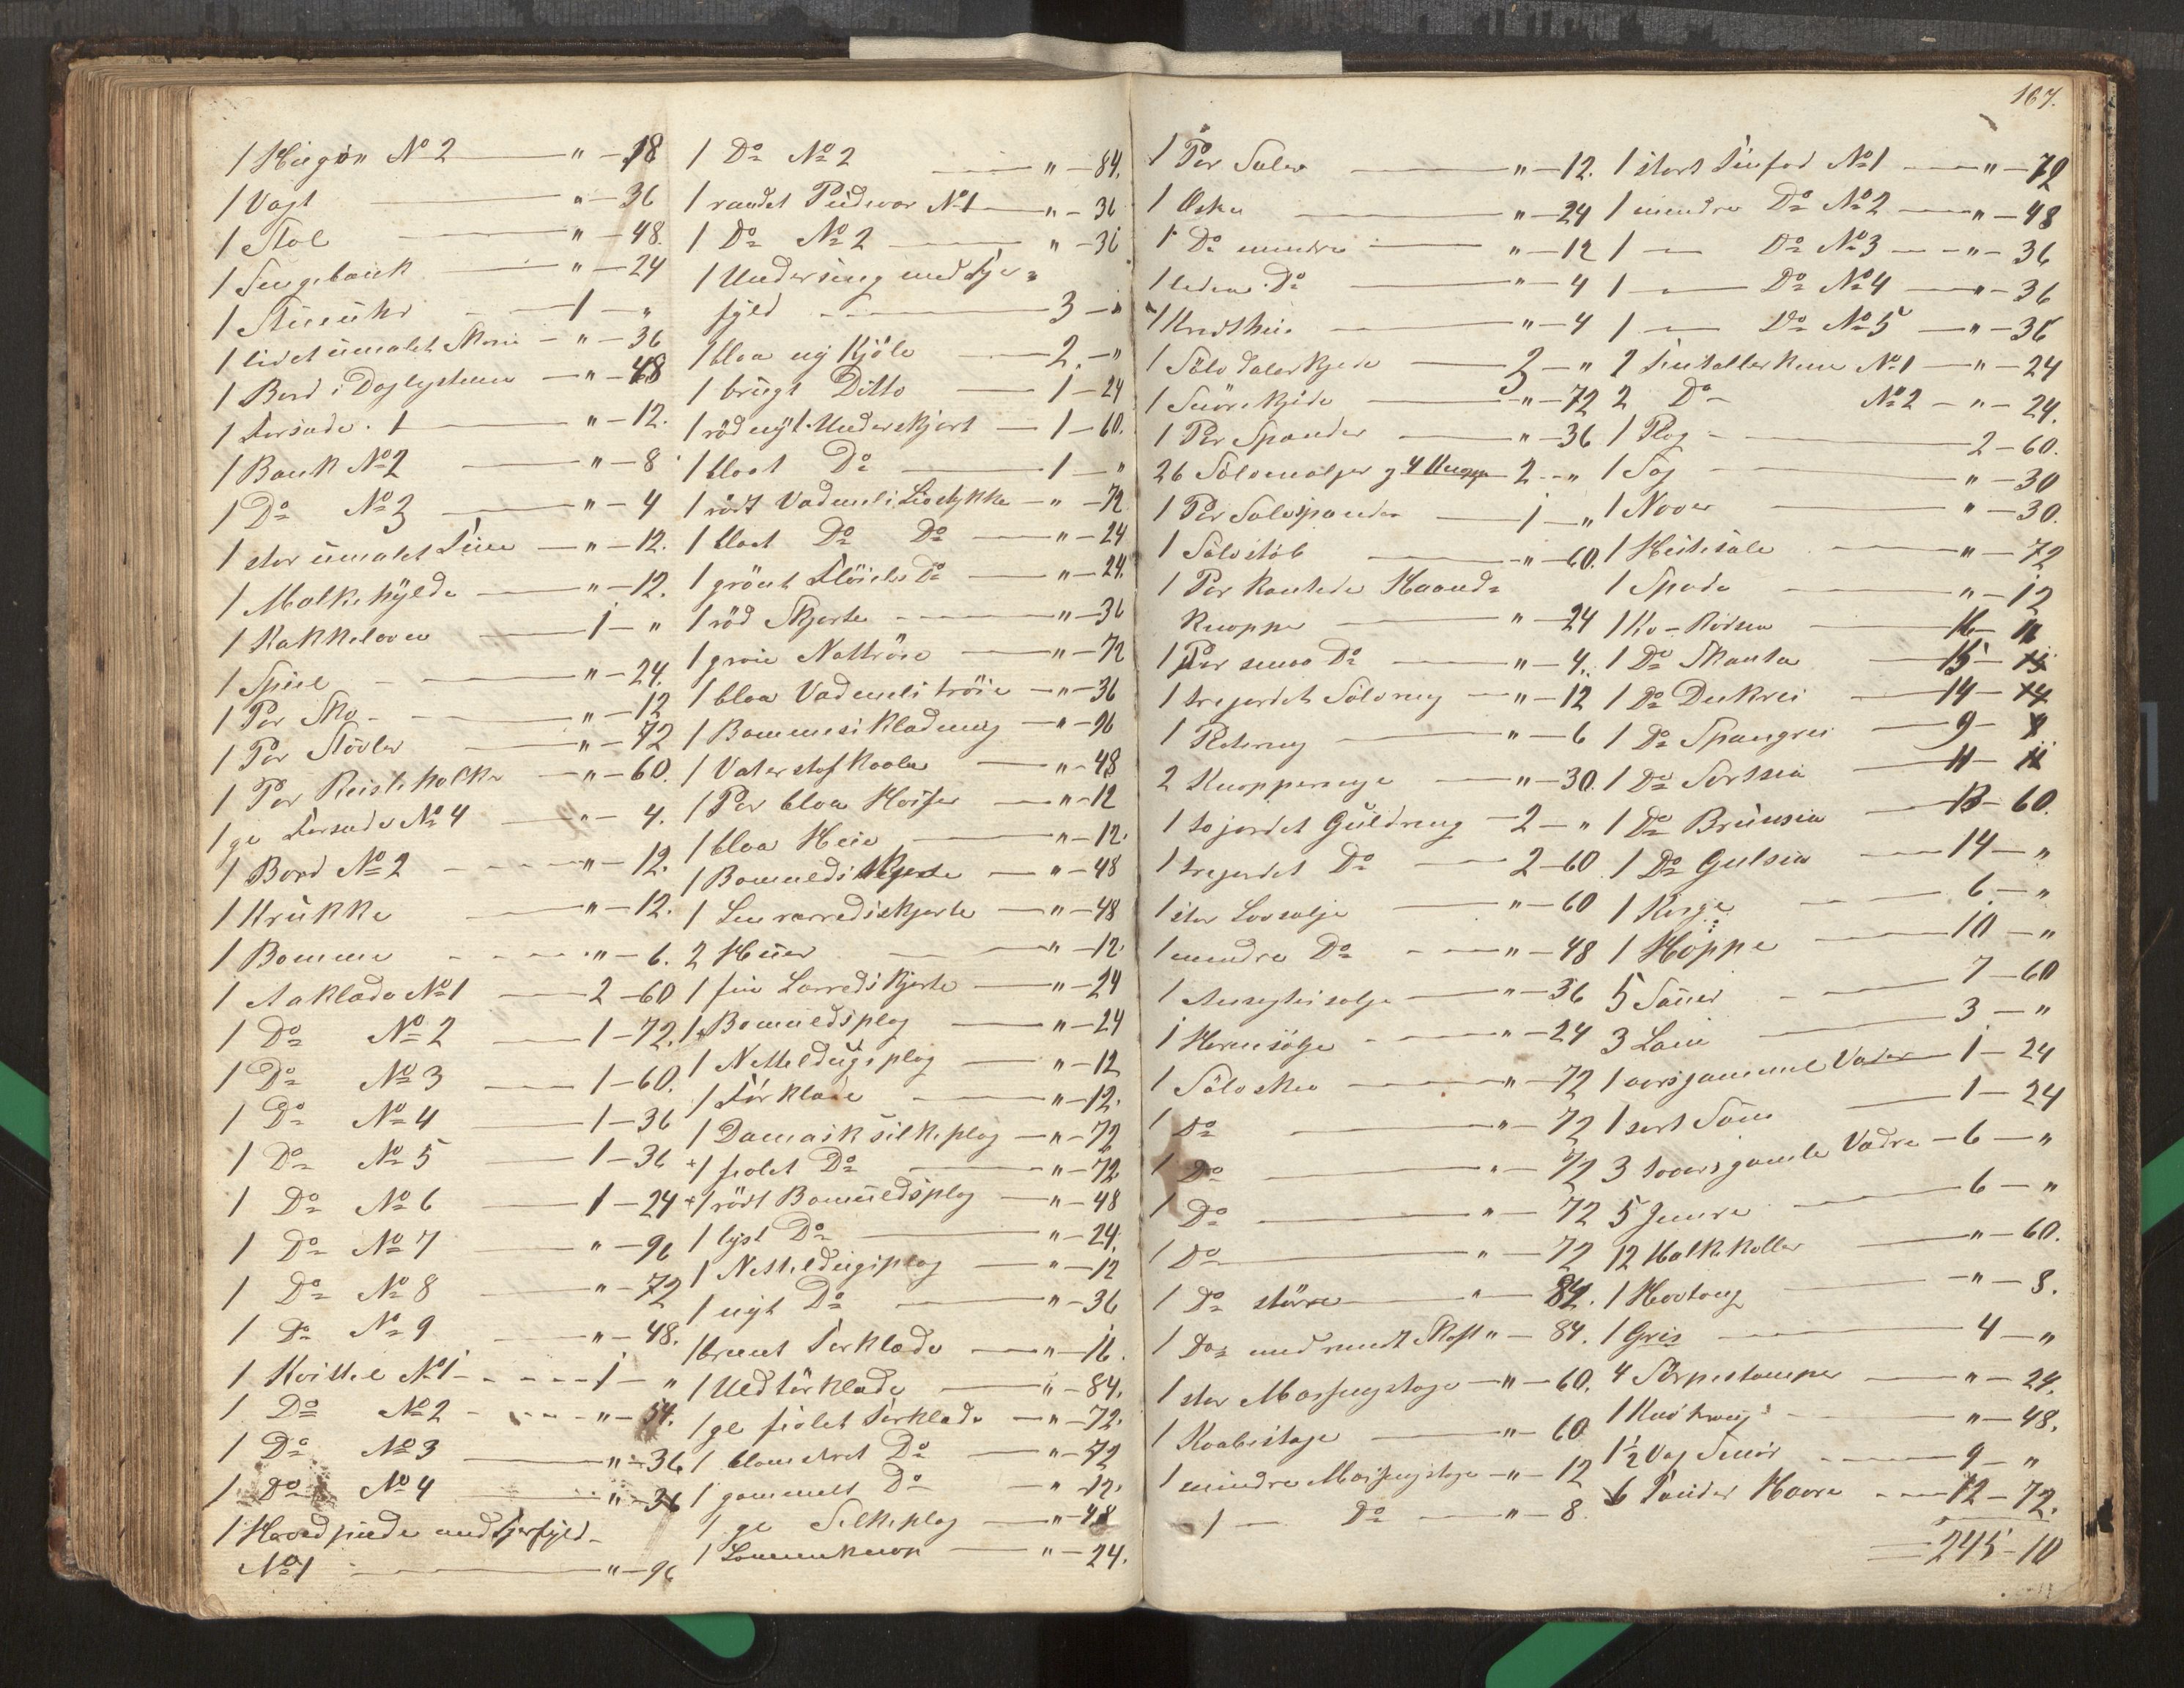 1 Hiegøn No 2 — " — 18
1 Vagt — " — 36
1 Stol — " — 48.
1 Sengebænk — " — 24
1 Stüeühr — 1 — "
1 lidet ümalet Skrin — " — 36
1 Bord i Daglystuen — " — 48
1 Forsæde. 1 — " — 12.
1 Bænk No 2 — " — 8
1 Do No 3 — " — 4
1 stor ümalet Tine — " — 12.
1 Melkehylde — " — 12.
1 Kakkeloven — 1 — "
1 Spiel — " — 24.
1 Par Sko — " — 12
1 Par Støvler — " — 72
1 Par Reiseholker — " — 60.
1 gl Forsæde No 4 — " — 4.
1 Bord No 2 — " — 12.
1 Krükke — " — 12.
1 Bomme — " — 6.
1 Aaklæde No 1 — 2 — 60
1 Do No 2 — 1 — 72.
1 Do No 3 — 1 — 60.
1 Do No 4 — 1 — 36
1 Do No 5 — 1 — 36
1 Do No 6 — 1 — 24
1 Do No 7 — " — 96
1 Do No 8 — " — 72
1 Do No 9 — " — 48.
1 Kvittel No 1 — 1 — "
1 Do No 2 — " — 54.
1 Do No 3 — " — 36
1 Do No 4 — " — 36
1 Hovedpüde med Fjerfyld
No 1 — " — 96
1 Do No 2 — " — 84.
1 randet Püdevar No 1 — " — 36
1 Do No 2 — " — 36
1 Underseng med Fjer=
fyld — 3 — "
1 blaa ny Kjole — 2. — "
1 brügt Ditto — 1 — 24
1 rød nyt Underskjørt — 1 — 60.
1 blaat Do — 1 — "
1 rødt Vadmels Livstykke — " — 72
1 blaat Do Do — " — 24
1 grønt Fløiels Do — " — 24.
1 rød Skjorte — " — 36
1 graa Nattrøie — " — 72
1 blaa Vadmels trøie — " — 36
1 Bommesi Klædning — " — 96
1 Vaterstof Kaabe — " — 48
1 Par blaa Hoser — " — 12
1 blaa Hüe — " — 12.
1 Bomuldsskjorte — " — 48
1 Linlærredsskjorte — " — 48
2 Hüer — " — 12.
1 fin Lærredsskjorte — " — 24
1 Bomüldsplag — " — 24
1 Netteldügsplag — " — 12
1 Tørklæde — " — 12.
1 Damask silkeplag — " — 72
+1 fiolet Do — " — 72
+1 rødt Bomüldsplag — " — 48
1 lyst Do — " — 24.
1 Netteldugsplag — " — 12
1 nyt Do — " — 36
1 brunt Tørklæde — " — 16.
1 Uldtørklæde — " — 84.
1 gl fiolet Tørklæde — " — 72.
1 blomstret Do — " — 72
1 gammelt Do — " — 12.
1 gl Silkeplag — " — 48
1 Lommekniv — " — 24.
167.
1 Par Saler — " — 12.
1 Øske — " — 24
1 Do mindre — " — 12
1 liden Do — " — 4
1 — " — 4
1 Sølv dalerkjede — 2 — "
1 Snørekjede — " — 72
1 Par Spænder — " — 36
26 Sølvmaljer og 4 Knapper — 2 — "
1 Par Sølvspænder — 1 — "
1 Sølvstøb — " — 60.
1 Par kantede Haand=
knapper — " — 24
1 Par smaa Do — " — 4.
1 tregjordet Sølvring — " — 12
1 Platering — " — 6
2 Knapperinge — " — 30.
1 togjordet Güldring — 2 — "
1 tregjordet Do — 2 — 60
1 stor Løvsølje — " — 60
1 mindre Do — " — 48
1 — " — 36
1 Hornsølje — " — 24
1 Sølvskee — " — 72
1 Do — " — 72
1 Do — " — 72
1 Do — " — 72
1 Do — " — 72
1 Do større — " — 84.
1 Do med rundt Skaft " — 84.
1 stor Messingstage — " — 60.
1 Kaaberstage — " — 60
1 mindre Messingstage — " — 12
1 — Do — " — 8.
1 stort Tinfad No 1 — " — 72
1 mindre Do No 2 — " — 48
1 — Do No 3 — " — 36
1 — Do No 4 — " — 36
1 — Do No 5 — " — 36
2 Tintallerkener No 1 — " — 24
2 Do No 2 — " — 24.
1 Plog — 2 — 60.
1 Sag — " — 30
1 Naver — " — 30.
1 Hestesale — " — 72
1 Spade — " — 12
1 Ko — Rødsia — 16 — "
1 Do Skauta — 15 —
1 Do Dukrei — 14 —
1 Do Spangrei — 9 —
1 Do Sortsia — 11 —
1 Do Brünsia — 13 — 60.
1 Do Gulsia — 14 — "
1 Kvige — 6. — "
1 Hoppe — 10 — "
5 Sauer — 7 — 60
3 Lam — 3 — "
1 aarsgammel Væder — 1 — 24
1 sort Sau — 1 — 24
3 toaarsgamle Vædre — 6 — "
5 Gimre — 6 — "
12 Melkekoller — " — 60.
1 Hovtang — " — 8.
1 Gris — 4 — "
4 Sørpestamper — " — 24.
1 — " — 48.
1½ Vog Smør — 9 — "
6 Tønder Havre — 12 — 72.
245 — 10